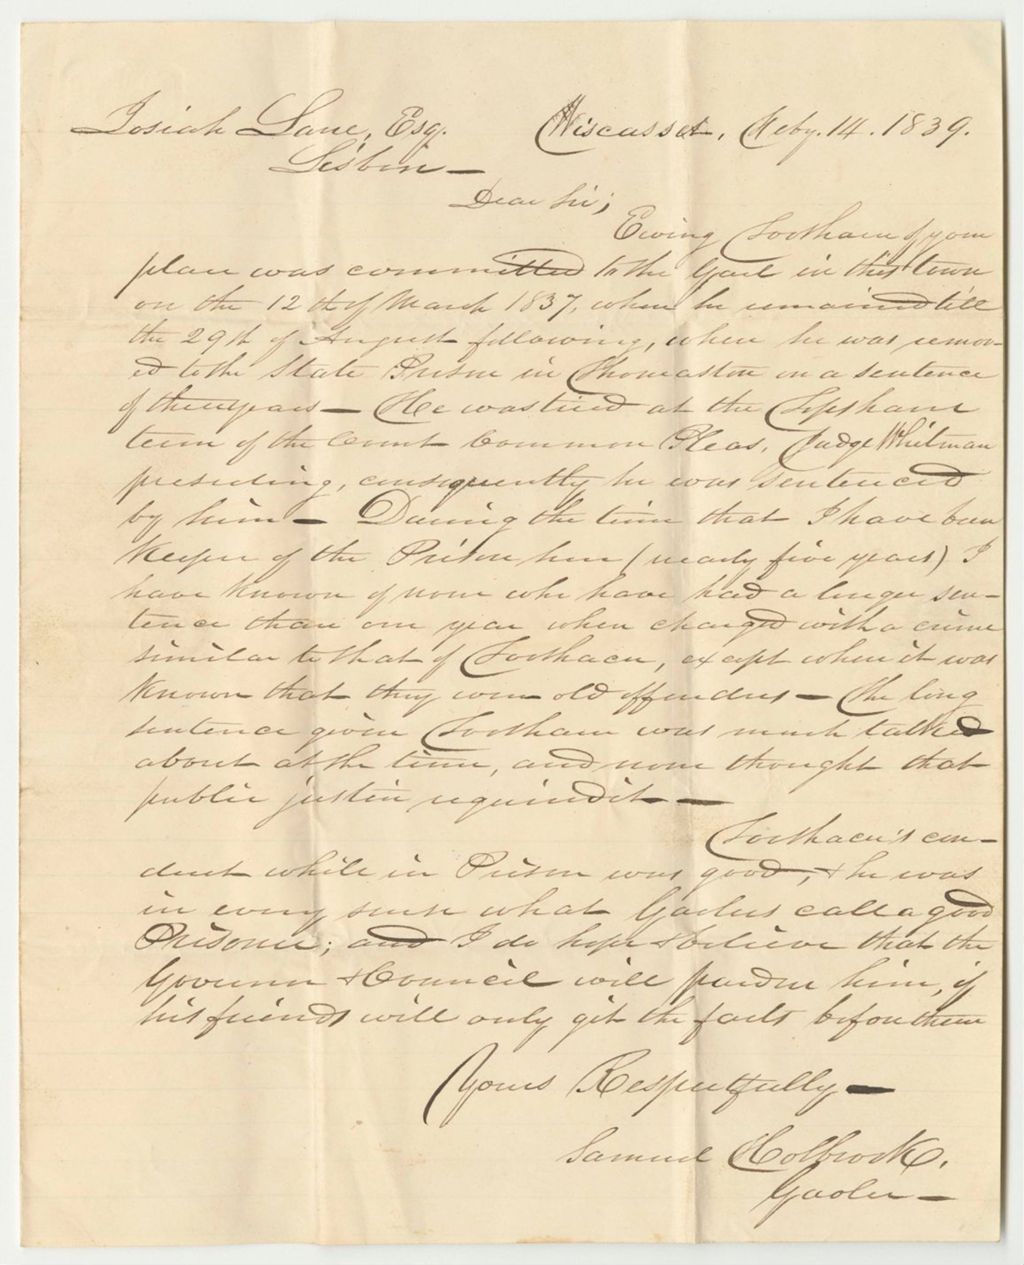 Josiah Lane, Esq. Wiscasset, Feby. 14. 1839.
Lisbon —
Dear Sir;
Ewing Toothacer of your
place was committed to the Gaol in this town
on the 12th of March 1837, where he remained till
the 29th of August following, when he was remov-
ed to the State Prison in Thomaston on a sentence
of three years — He was tried at the Topsham
term of the Court Common Pleas, Judge Whitman
presiding, consequently he was sentenced
by him — During the time that I have been
Keeper of the Prison here (nearly five years) I
have known of none who have had a longer sen-
tence than one year when charged with a crime
similar to that of Toothacer, except when it was
Known that they were old offenders — The long
sentence given Toothacer was much talked
about at the time, and none thought that
public justice required it —
Toothacer's con-
duct while in Prison was good, & he was
in every sense what Gaolers call a good
Prisoner; and I do hope & believe that the
Governor & Council will pardon him, if
his friends will only get the facts before them
Yours Respectfully —
Samuel Holbrook,
Gaoler —